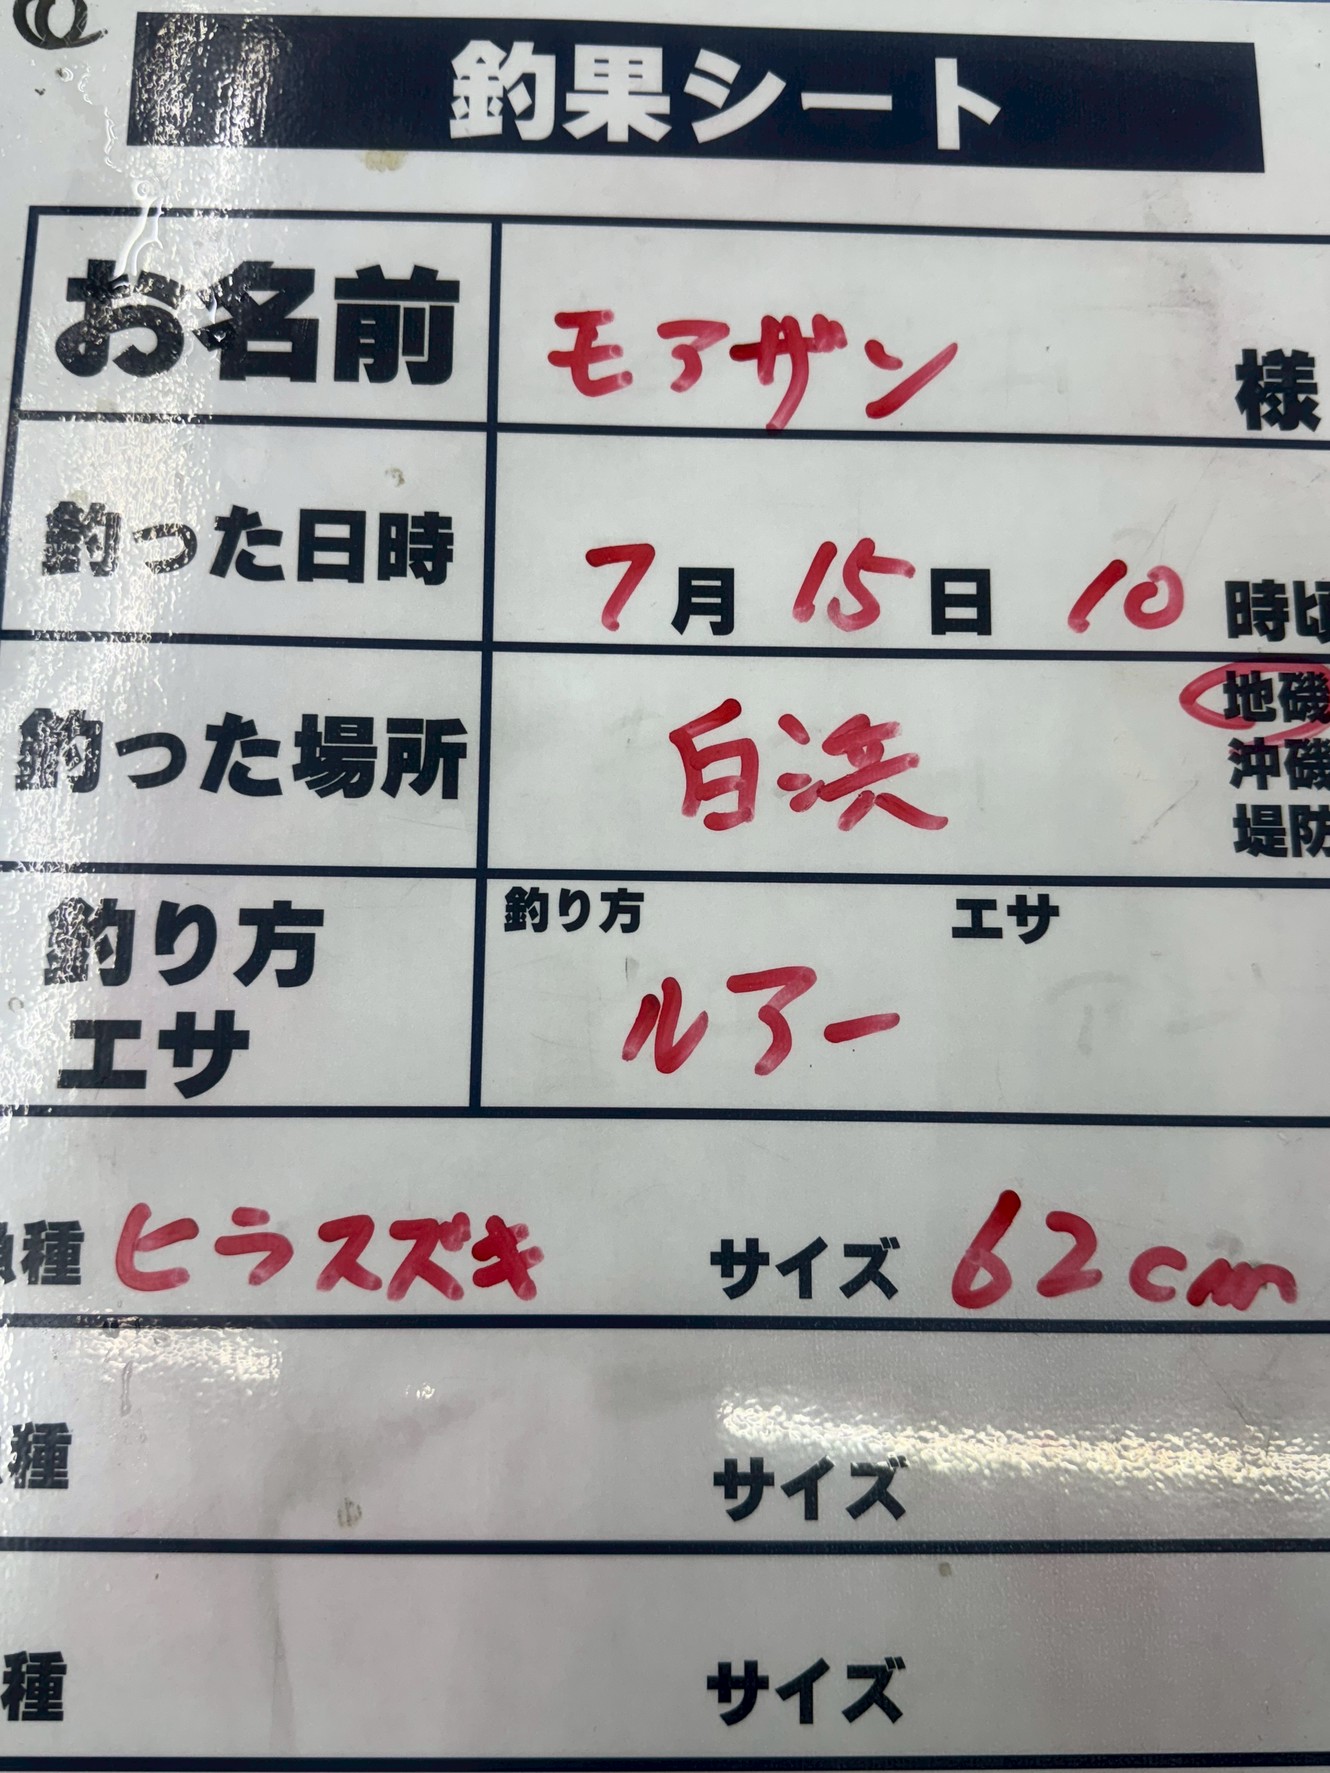 釣果シート
お名前 モアザン 様
釣った日時 7月 15日 10時頃
釣った場所 白浜 地磯
沖磯
堤防
釣り方 エサ
釣り方 エサ
ルアー
魚種 ヒラスズキ サイズ 62cm
種 サイズ
種 サイズ